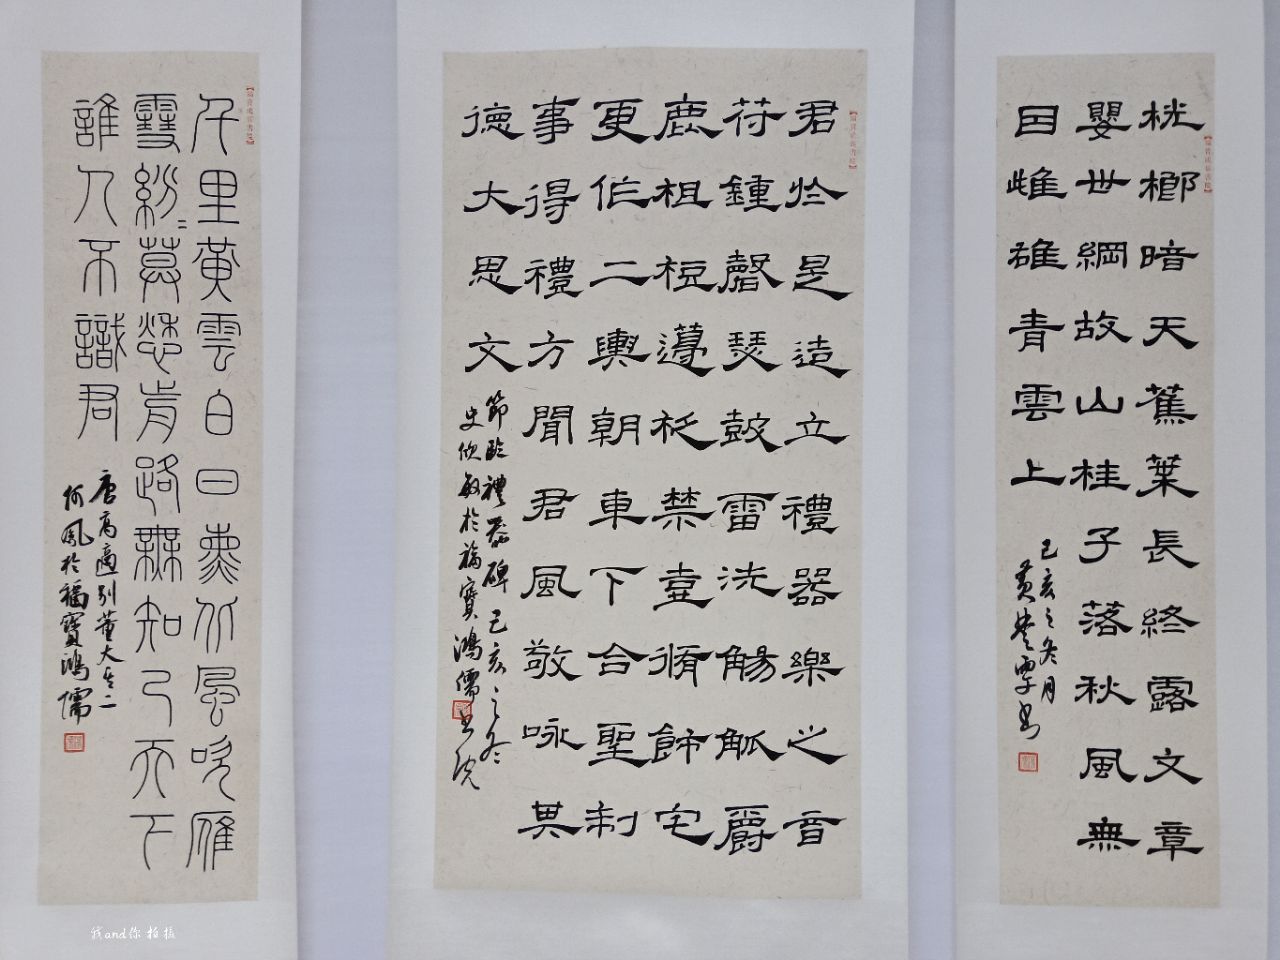 桄榔暗天蕉葉長終露文章
嬰世綱故山桂子落秋風無
因雌雄青雲上
己亥之冬月
書
君於是造立禮器樂之音
苻鍾磬瑟鼓雷洗觴觚爵
鹿柤梪籩柉禁壺脩飾宅
更作二輿朝車下合聖制
事得禮方聞君風敬咏其
德大思文
節臨禮器碑己亥之冬
史欣敏於福寶鴻儒書院
千里黃雲白日曛北風吹雁
雪紛〻莫愁前路無知己天下
誰人不識君
唐高適別董大其二
何鳳於福寶鴻儒
我and你 拍摄